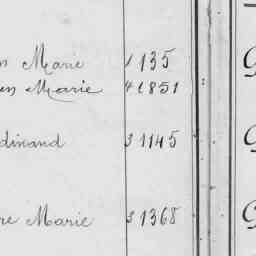 Marie 1 135
Marie 4 1851
dinand 3 1145
re Marie 3 1368